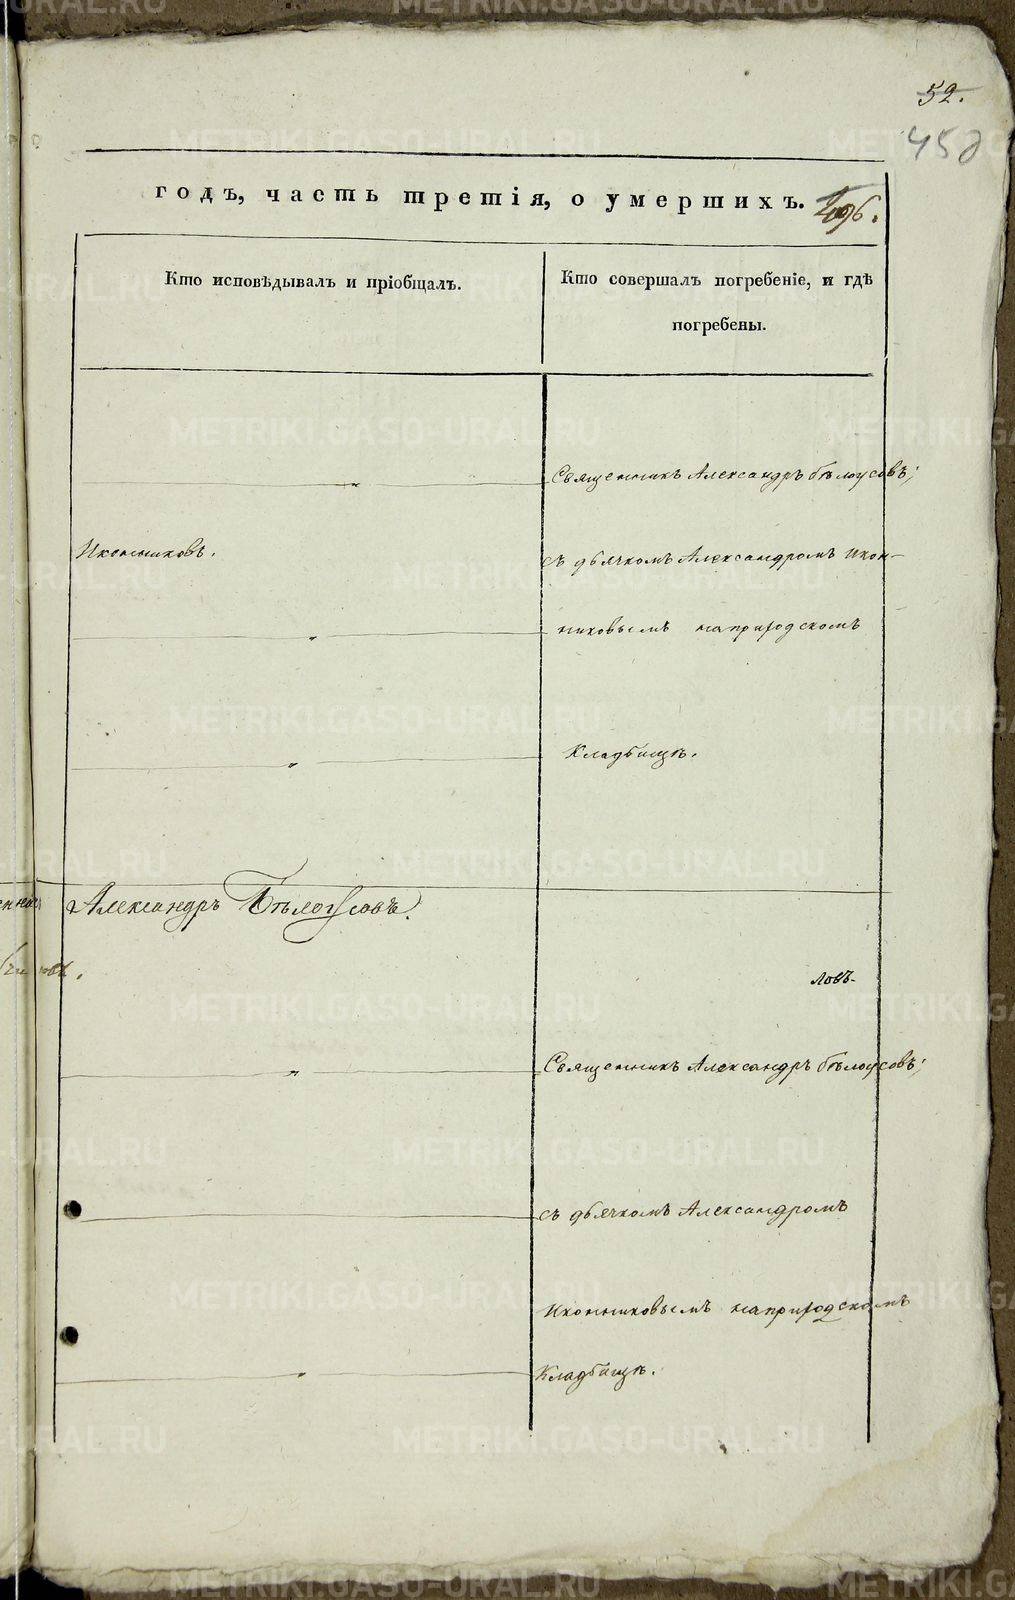 52.
450
годъ, часть третія, о умершихъ.
1096.
Кто исповѣдывалъ и пріобщалъ.
Кто совершалъ погребеніе, и гдѣ
погребены.
Священникъ Александръ Бѣлоусовъ;
Иконниковъ.
съ дьячкомъ Александромъ Икон-
никовымъ на приходскомъ
Кладбищѣ.
Александръ Бѣлоусовъ.
ловъ-
Священникъ Александръ Бѣлоусовъ;
съ дьячкомъ Александромъ
Иконниковымъ на приходскомъ
Кладбищѣ.
METRIKI.GASO-URAL.RU